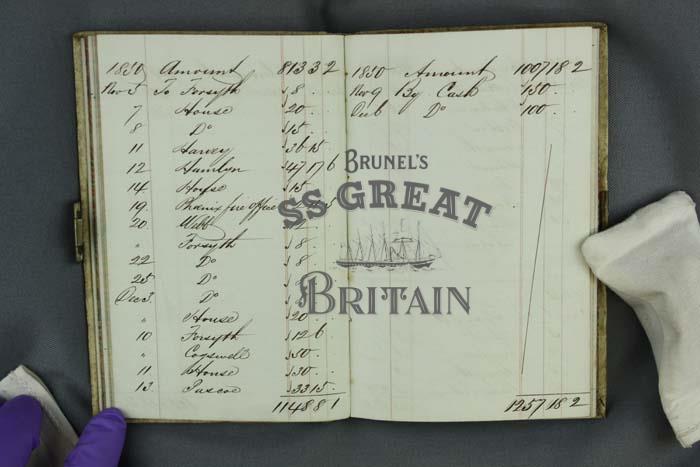 1850 Amount 813 3 2
Nov 5 To Forsyth 8
7 House 20
8 Do 15
11 Harvey 36 15
12 Hamlyn 47 17 6
14 House 15
19 Phœnix fire office
20 Webb
" Forsyth 8
22 Do 8
25 Do
Dec 3 Do
" House 20
10 Forsyth 12 6
" Cogswell 50
11 House 30
13 Pascoe 33 15
1148 8 1
1850 Amount 1007 18 2
Nov 9 By Cash 150
Do 100
1257 18 2
BRUNEL'S
SS GREAT
BRITAIN